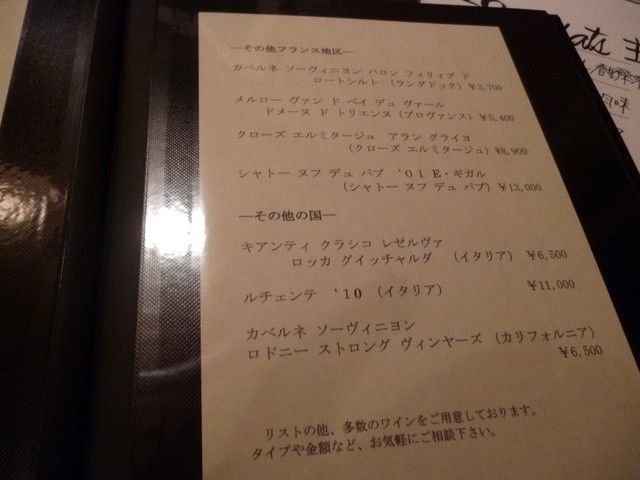 ―その他フランス地区―
カベルネ ソーヴィニヨン バロン フィリィプ ド
ロートシルト （ラングドック）￥3,700
メルロー ヴァン ド ペイ デュ ヴァール
ドメーヌ ド トリエンヌ（プロヴァンス）￥5,400
クローズ エルミタージュ アラン グライヨ
（クローズ エルミタージュ）￥8,900
シャトー ヌフ デュ パプ ‘01 E・ギガル
（シャトー ヌフ デュ パプ）￥13,000
―その他の国―
キアンティ クラシコ レゼルヴァ
ロッカ グイッチャルダ （イタリア） ￥6,500
ルチェンテ ‘10 （イタリア） ￥11,000
カベルネ ソーヴィニヨン
ロドニー ストロング ヴィンヤーズ （カリフォルニア）
￥6,500
リストの他、多数のワインをご用意しております。
タイプや金額など、お気軽にご相談下さい。